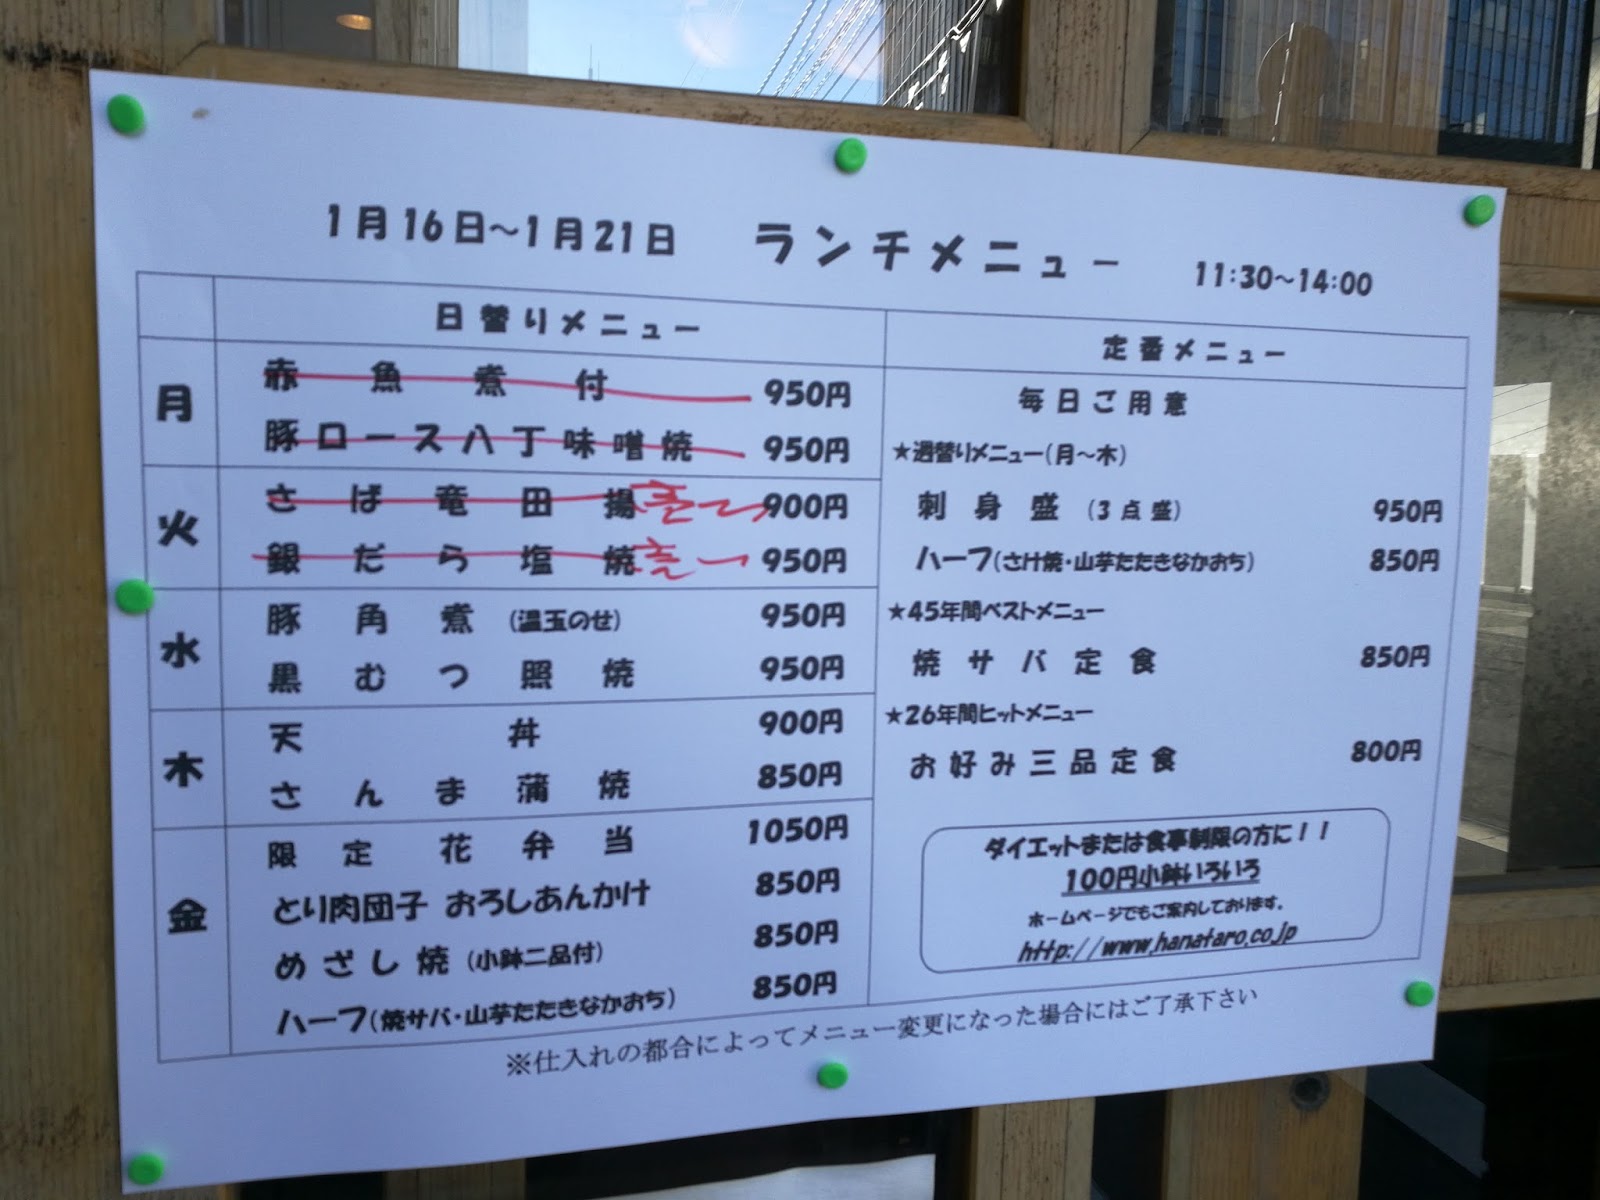 1月16日～1月21日 ランチメニュー 11:30～14:00
日替りメニュー
月
赤魚煮付 950円
豚ロース八丁味噌焼 950円
火
さば竜田揚 900円
銀だら塩焼 950円
水
豚角煮 (温玉のせ) 950円
黒むつ照焼 950円
木
天丼 900円
さんま蒲焼 850円
金
限定花弁当 1050円
とり肉団子 おろしあんかけ 850円
めざし焼 (小鉢二品付) 850円
ハーフ(焼サバ・山芋たたきなかおち) 850円
定番メニュー
毎日ご用意
★週替りメニュー(月～木)
刺身盛 (3点盛) 950円
ハーフ(さけ焼・山芋たたきなかおち) 850円
★45年間ベストメニュー
焼サバ定食 850円
★26年間ヒットメニュー
お好み三品定食 800円
ダイエットまたは食事制限の方に！！
100円小鉢いろいろ
ホームページでもご案内しております。
http://www.hanataro.co.jp
※仕入れの都合によってメニュー変更になった場合にはご了承下さい